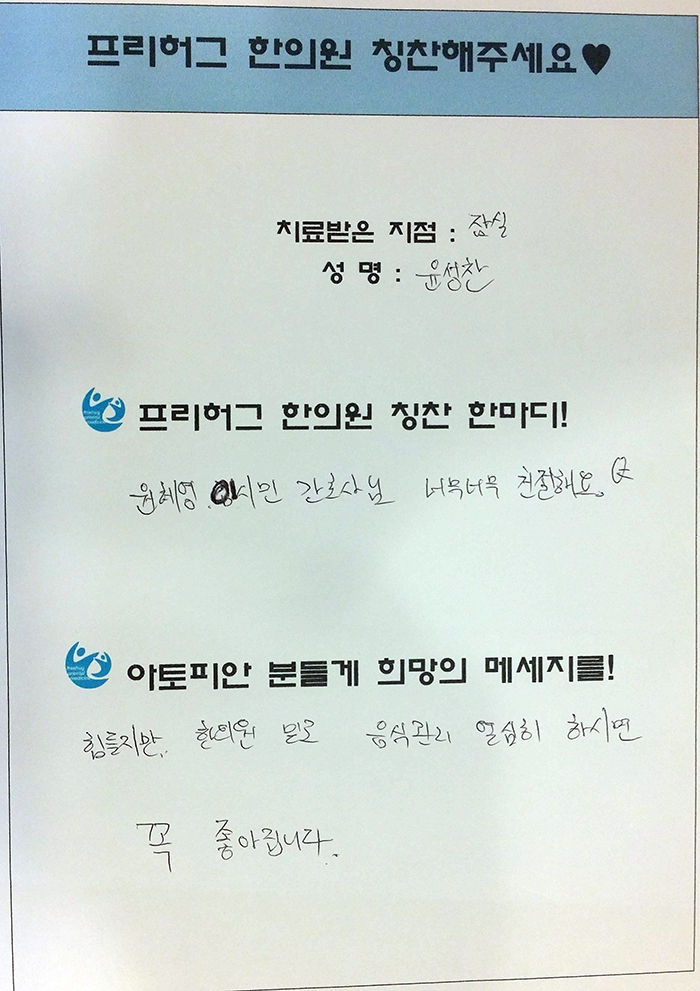 프리허그 한의원 칭찬해주세요♥
치료받은 지점 : 잠실
성 명 : 윤성찬
프리허그 한의원 칭찬 한마디!
원혜영, 이시민 간호사님 너무너무 친절해요.
아토피안 분들게 희망의 메세지를!
힘들지만, 한의원 믿고 음식관리 열심히 하시면
꼭 좋아집니다.